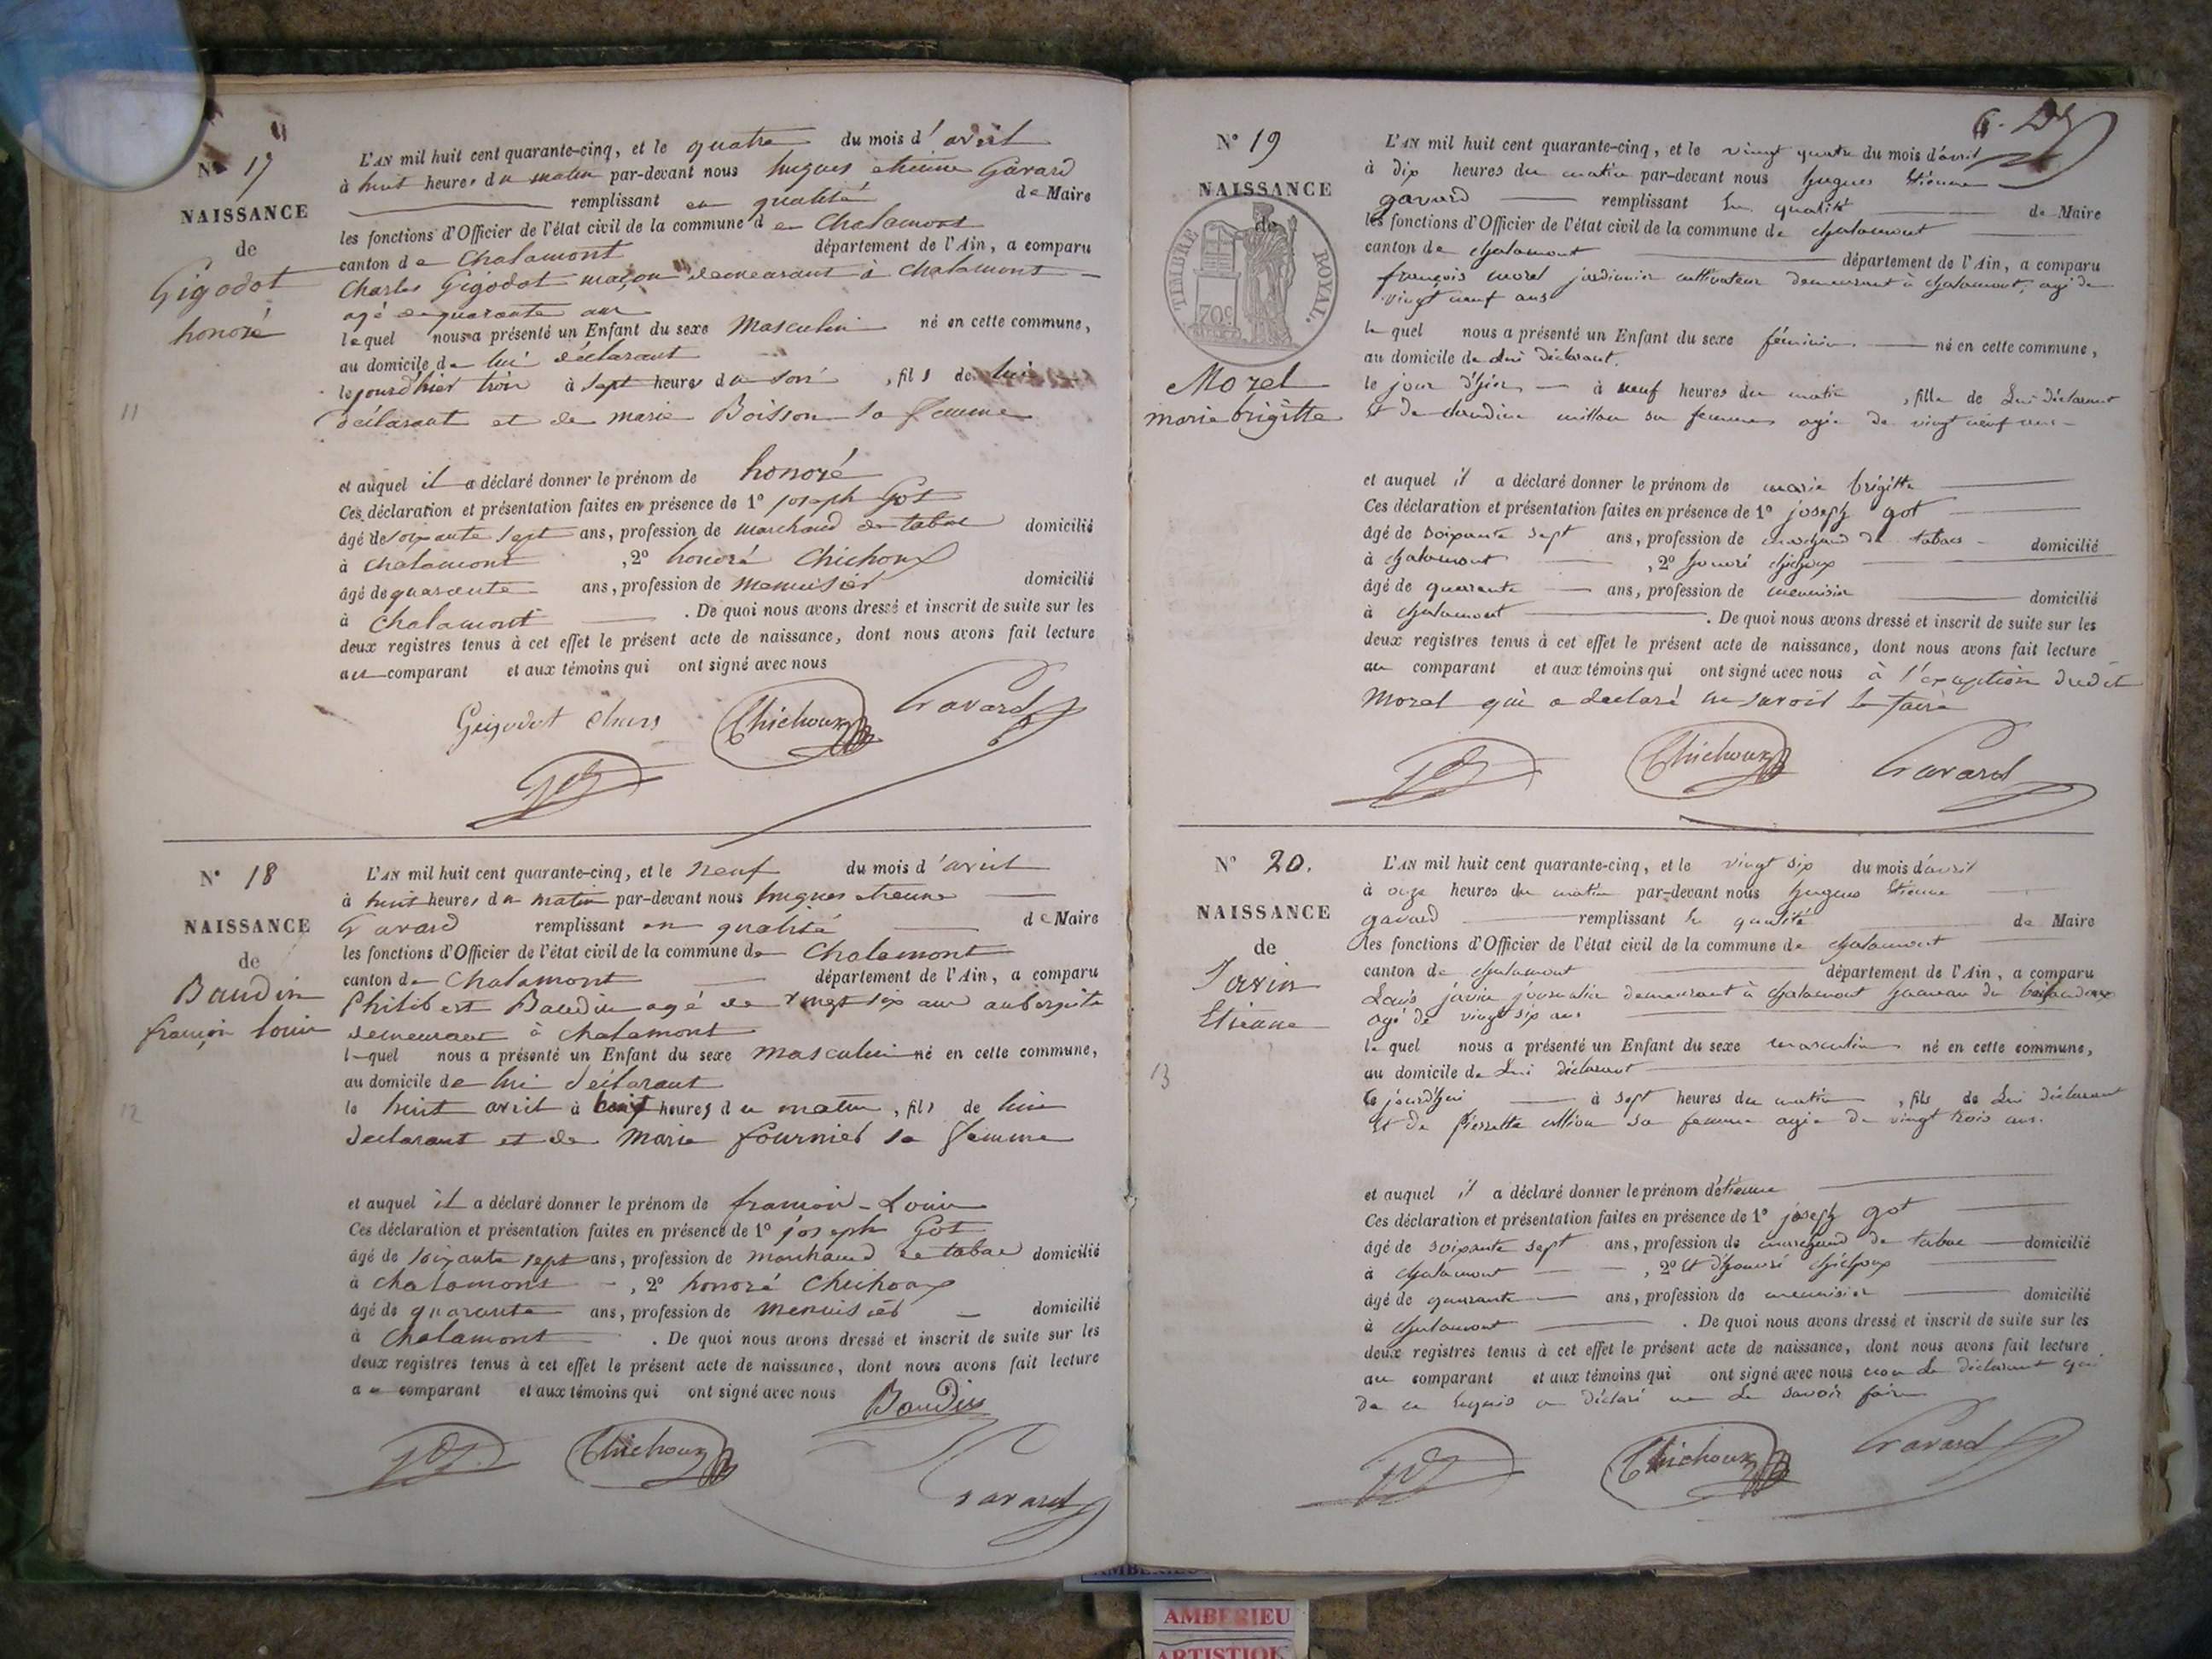 N° 17
NAISSANCE
de
Gigodot
honoré
L'AN mil huit cent quarante-cinq, et le quatre du mois d'avril
à huit heures du matin par-devant nous hugues etienne Gavard
remplissant en qualité de Maire
les fonctions d'Officier de l'état civil de la commune de Chalamont
canton de Chalamont département de l'Ain, a comparu
Charles Gigodot maçon demeurant à Chalamont
agé de quarante ans
lequel nous a présenté un Enfant du sexe Masculin né en cette commune,
au domicile de lui déclarant
le jour d'hier trois à sept heures du soir, fils de lui
déclarant et de marie Boisson sa femme
11
et auquel il a déclaré donner le prénom de honoré
Ces déclaration et présentation faites en présence de 1° joseph Got
âgé de soixante sept ans, profession de marchand de tabac domicilié
à chalamont, 2° honoré Chichoux
âgé de quarante ans, profession de menuisier domicilié
à Chalamont. De quoi nous avons dressé et inscrit de suite sur les
deux registres tenus à cet effet le présent acte de naissance, dont nous avons fait lecture
au comparant et aux témoins qui ont signé avec nous
Gigodot Chichoux Gavard
N° 18
NAISSANCE
de
Baudin
françois louis
L'AN mil huit cent quarante-cinq, et le neuf du mois d'avril
à huit heures du matin par-devant nous hugues etienne
Gavard remplissant en qualité de Maire
les fonctions d'Officier de l'état civil de la commune de Chalamont
canton de Chalamont département de l'Ain, a comparu
Philibert Baudin agé de vingt six ans aubergiste
demeurant à Chalamont
lequel nous a présenté un Enfant du sexe masculin né en cette commune,
au domicile de lui déclarant
le huit avril à heures du matin, fils de lui
déclarant et de Marie fournier sa femme
12
et auquel il a déclaré donner le prénom de françois-Louis
Ces déclaration et présentation faites en présence de 1° joseph Got
âgé de soixante sept ans, profession de marchand de tabac domicilié
à chalamont, 2° honoré Chichoux
âgé de quarante ans, profession de menuisier domicilié
à Chalamont. De quoi nous avons dressé et inscrit de suite sur les
deux registres tenus à cet effet le présent acte de naissance, dont nous avons fait lecture
au comparant et aux témoins qui ont signé avec nous
Baudin
Chichoux
Gavard
N° 19
NAISSANCE
de
TIMBRE ROYAL.
70c
Morel
marie brigitte
L'AN mil huit cent quarante-cinq, et le vingt quatre du mois d'avril
à dix heures du matin par-devant nous hugues Etienne
gavard remplissant En qualité de Maire
les fonctions d'Officier de l'état civil de la commune de chalamont
canton de chalamont département de l'Ain, a comparu
françois morel jardinier cultivateur demeurant à chalamont, agé de
vingt neuf ans
lequel nous a présenté un Enfant du sexe féminin né en cette commune,
au domicile de Lui déclarant.
le jour d'hier à neuf heures du matin, fille de Lui déclarant
Et de claudine millon sa femme agée de vingt neuf ans
et auquel il a déclaré donner le prénom de marie brigitte
Ces déclaration et présentation faites en présence de 1° joseph got
âgé de soixante sept ans, profession de marchand de tabacs domicilié
à chalamont, 2° honoré chichoux
âgé de quarante ans, profession de menuisier domicilié
à chalamont. De quoi nous avons dressé et inscrit de suite sur les
deux registres tenus à cet effet le présent acte de naissance, dont nous avons fait lecture
au comparant et aux témoins qui ont signé avec nous à l'exception dudit
Morel qui a declaré ne savoir le faire
Chichoux Gavard
N° 20.
NAISSANCE
de
Javin
Etienne
L'AN mil huit cent quarante-cinq, et le vingt six du mois d'avril
à onze heures du matin par-devant nous hugues Etienne
gavard remplissant En qualité de Maire
les fonctions d'Officier de l'état civil de la commune de chalamont
canton de chalamont département de l'Ain, a comparu
Louis javin journalier demeurant à chalamont hameau du
agé de vingt six ans
lequel nous a présenté un Enfant du sexe masculin né en cette commune,
au domicile de Lui déclarant
13
ce jourd'hui à sept heures du matin, fils de Lui déclarant
Et de pierrette sa femme agée de vingt trois ans.
et auquel il a déclaré donner le prénom d'étienne
Ces déclaration et présentation faites en présence de 1° joseph got
âgé de soixante sept ans, profession de marchand de tabac domicilié
à chalamont, 2° Et d'honoré chichoux
âgé de quarante ans, profession de menuisier domicilié
à chalamont. De quoi nous avons dressé et inscrit de suite sur les
deux registres tenus à cet effet le présent acte de naissance, dont nous avons fait lecture
au comparant et aux témoins qui ont signé avec nous non Le déclarant qui
de ce Enquis a déclaré ne Le savoir faire
Chichoux Gavard
AMBERIEU
AMBERIEU
ARTISTIQUE